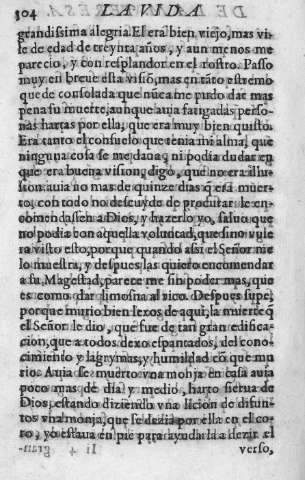 304 LA VIDA
grandissima alegria. El era bien viejo, mas vi-
le de edad de treynta años, y aun menos me
parecio, y con resplandor en el rostro. Passo
muy en breue esta visiõ, mas en tãto estremo
que de consolada que nũca me pudo dar mas
pena su muerte, aunque auia fatigadas perso-
nas hartas por ello, que era muy bien quisto.
Era tanto el consuelo que tenia mi alma, que
ninguna cosa se me daua, ni podia dudar en
que era buena vision, digo, que no era illu-
sion. auia no mas de quinze dias q̃ era muer-
to, con todo no descuyde de procurar le en-
comendassen a Dios, y hazerlo yo, saluo que
no podia con aquella voluntad, que si no vuie
ra visto esto, porque quando assi el Señor me
lo muestra, y despues las quiero encomendar
a su Magestad, parece me sin poder mas, que
es como dar limosna al rico. Despues supe,
porque murio bien lexos de aqui, la muerte q̃
el Señor le dio, que fue de tan gran edifica-
cion, que a todos dexo espantados, del cono-
cimiento y lagrymas, y humildad cõ que mu
rio. Auia se muerto vna monja en casa auia
poco mas de dia y medio, harto sierua de
Dios, estando diziendo vna licion de difun-
tos vna monja, que se dezia por ella en el co-
ro, yo estaua en pie para ayudarla a dezir el
Ii 4 verso,